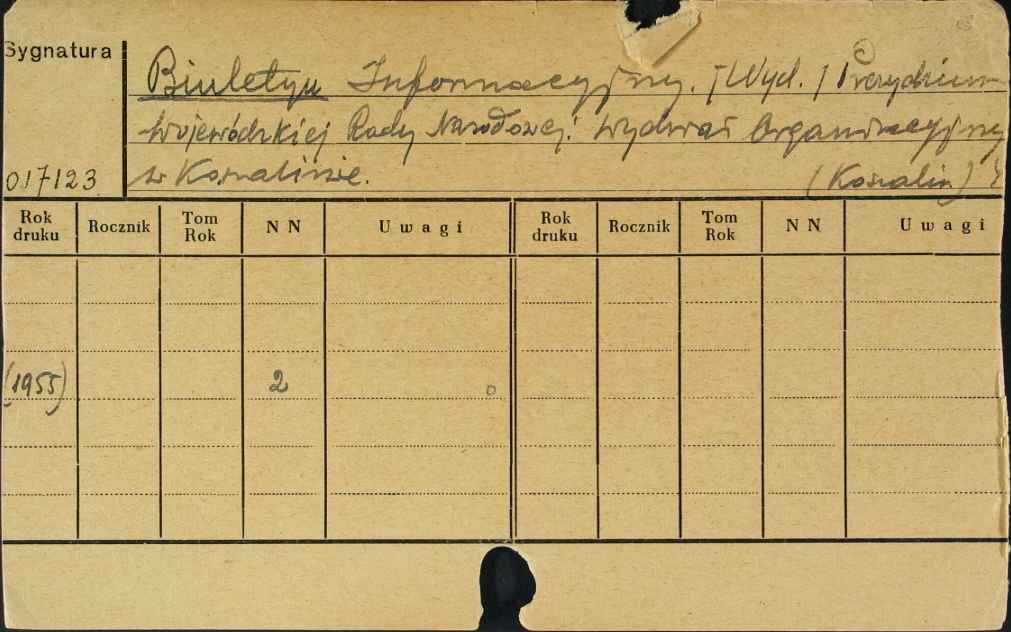 Sygnatura
Biuletyn Informacyjny. [Wyd.] Prezydium
Wojewódzkiej Rady Narodowej: Wydział Organizacyjny
w Koszalinie.
(Koszalin)
017123
Rok druku Rocznik Tom Rok NN Uwagi Rok druku Rocznik Tom Rok NN Uwagi
(1955) 2 0